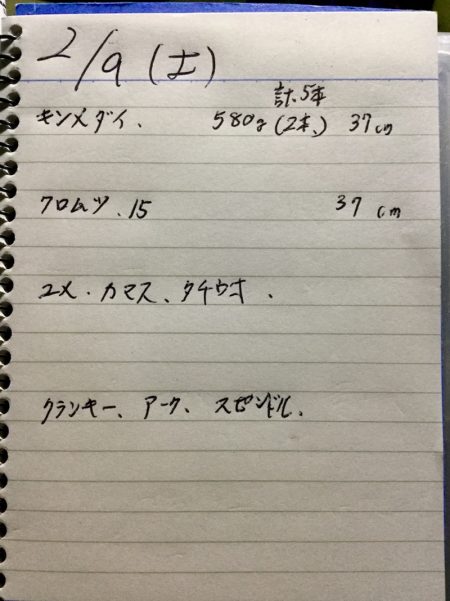 2/9(土)
計、5本
キンメダイ、 580g(2本、) 37cm
クロムツ、15 37cm
ユメ・カマス、タチウオ、
クランキー、アーク、スピンドル、